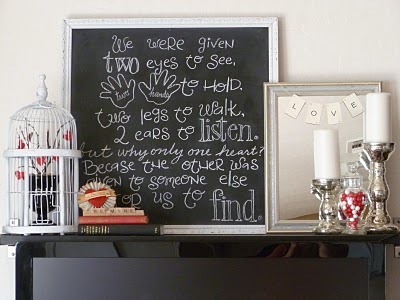 We were given
two eyes to see,
two hands to HOLD.
two legs to walk,
2 ears to listen.
but why only one heart?
Becase the other was
to someone else
us to find.
LOVE